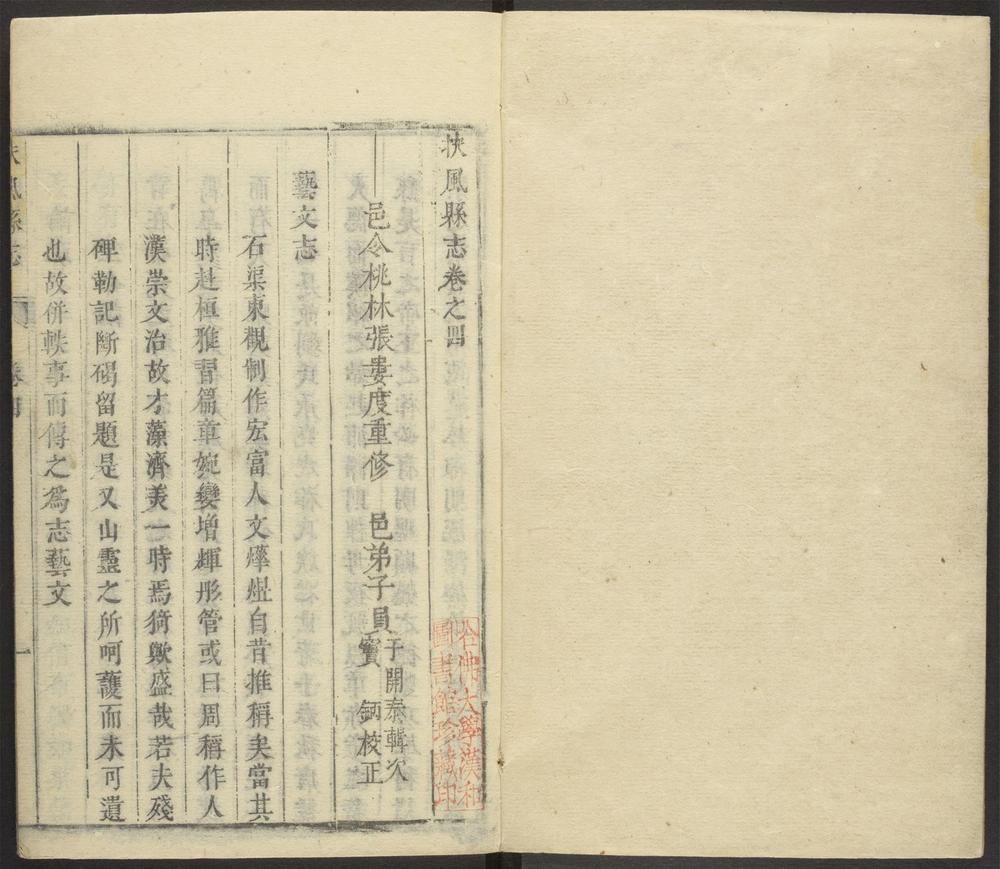 扶風縣志卷之四
邑令桃林張婁度重修　邑弟子員于開泰輯次
竇　鈵校正
藝文志
石渠東觀制作宏富人文爗熤自昔推稱矣當其
時赴桓雅習篇章婉孌增輝彤管或曰周稱作人
漢崇文治故才藻濟美一時焉猗歟盛哉若夫殘
碑勒記斷碣留題是又山靈之所呵護而未可遺
也故併軼事而傳之爲志藝文
扶風縣志　卷四　一
哈佛大學漢和
圖書館珍藏印